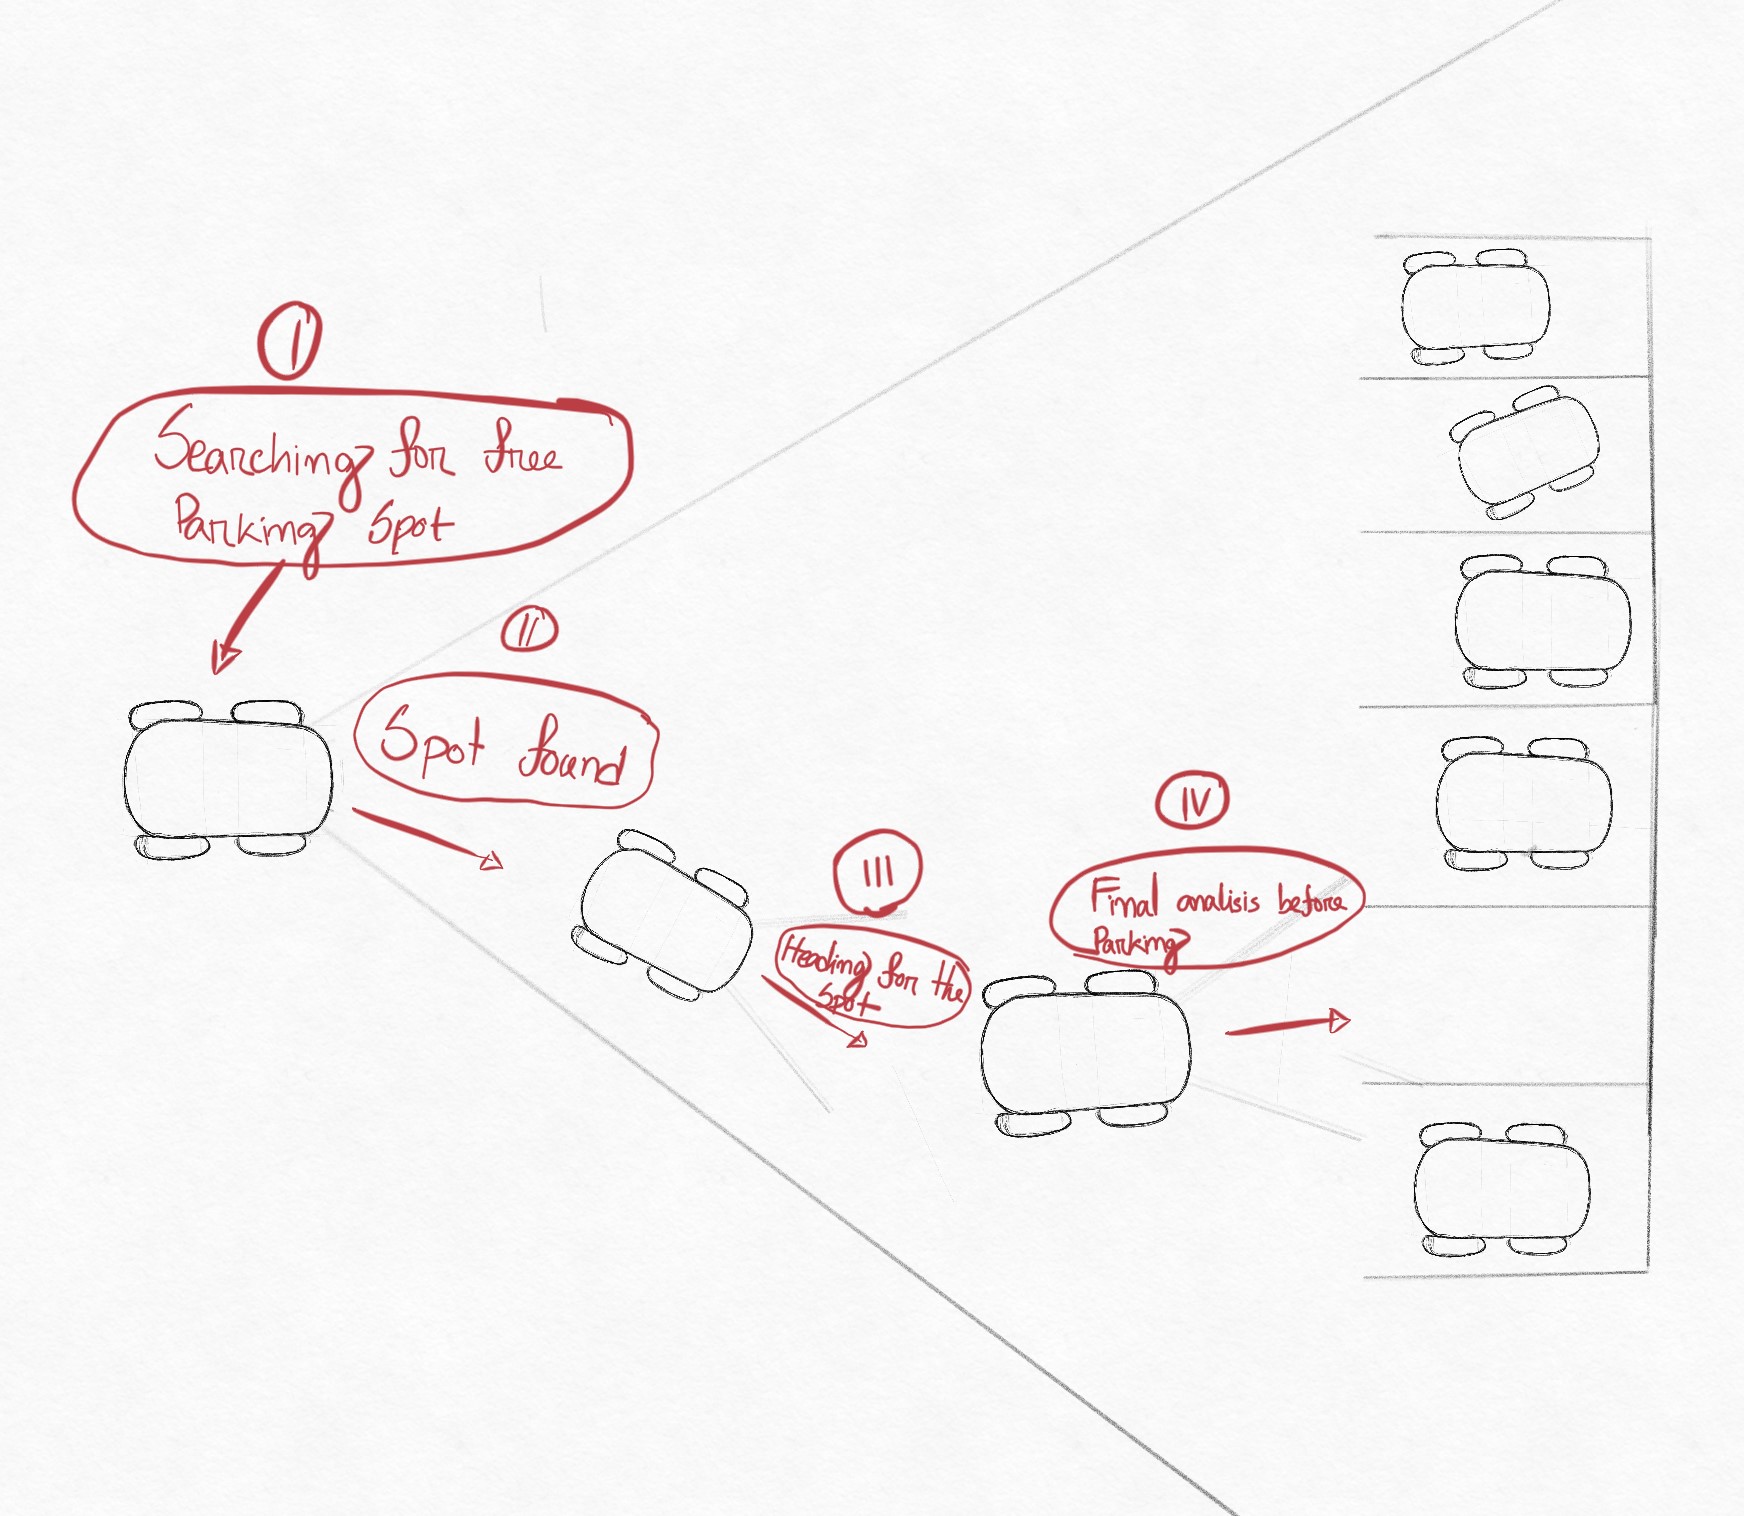 I
Searching for free
Parking Spot
II
Spot found
III
Heading for the
Spot
IV
Final analisis before
Parking